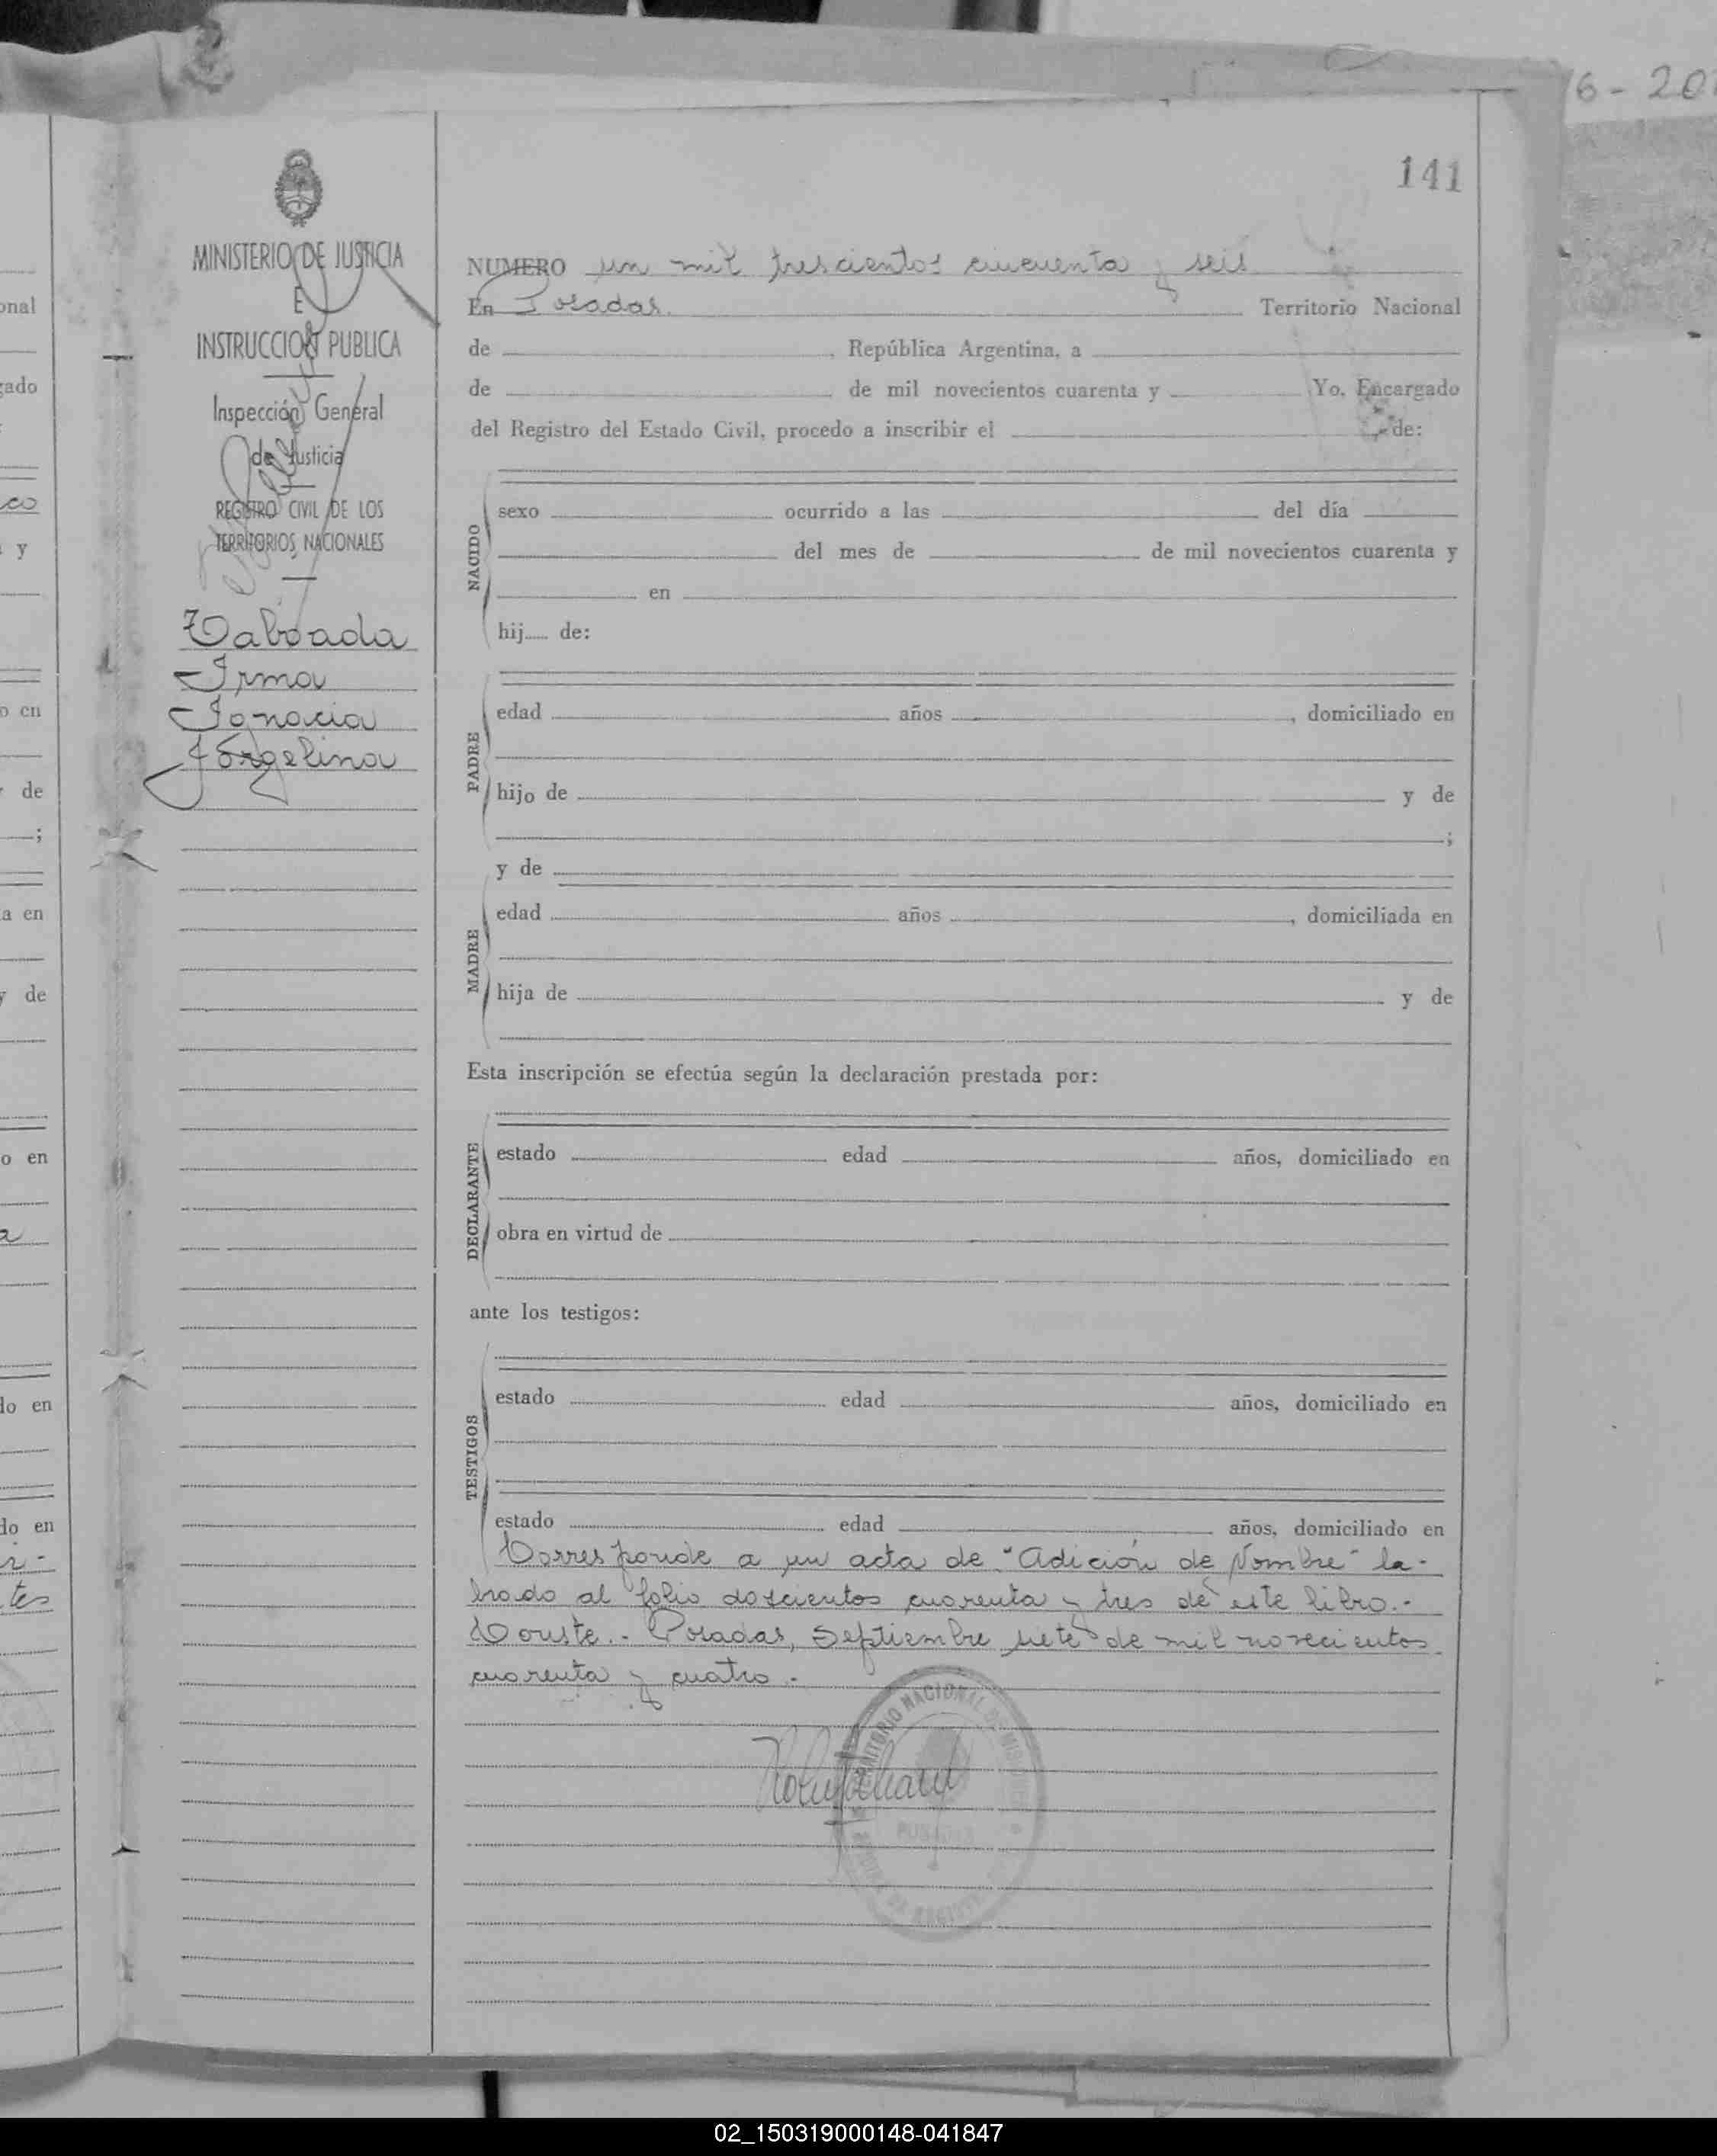 6-20
141
MINISTERIO DE JUSTICIA
E
INSTRUCCION PUBLICA
Inspección General
de Justicia
REGISTRO CIVIL DE LOS
TERRITORIOS NACIONALES
Taboada
Irma
Ignacia
Jorgelina
NUMERO un mil trescientos cincuenta y seis
En Posadas. Territorio Nacional
de , República Argentina, a
de de mil novecientos cuarenta y Yo, Encargado
del Registro del Estado Civil, procedo a inscribir el de:
NACIDO
sexo ocurrido a las del día
del mes de de mil novecientos cuarenta y
en
hij de:
PADRE
edad años , domiciliado en
hijo de y de
;
y de
MADRE
edad años , domiciliada en
hija de y de
Esta inscripción se efectúa según la declaración prestada por:
DECLARANTE
estado edad años, domiciliado en
obra en virtud de
ante los testigos:
TESTIGOS
estado edad años, domiciliado en
estado edad años, domiciliado en
Corresponde a un acta de "Adición de Nombre" la-
brado al folio doscientos cuarenta y tres de este libro.-
Conste.- Posadas, Septiembre siete de mil novecientos
cuarenta y cuatro.-
TERRITORIO NACIONAL DE MISIONES
POSADAS
02_150319000148-041847